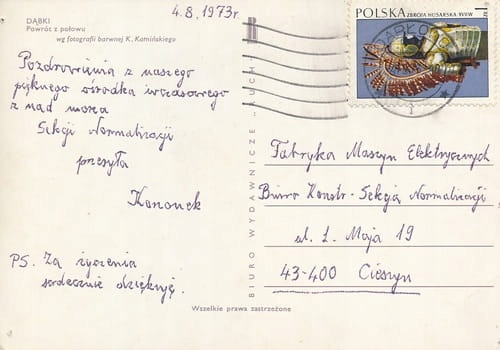 4.8.1973r
DĄBKI
Powrót z połowu
wg fotografii barwnej K. Kamińskiego
Pozdrowienia z naszego
pięknego ośrodka wczasowego
z nad morza
Sekcji Normalizacji
przesyła
Kononek
PS. Za życzenia
serdecznie dziękuję.
BIURO WYDAWNICZE "RUCH"
Wszelkie prawa zastrzeżone
POLSKA ZBROJA HUSARSKA·XVII W
Fabryka Maszyn Elektrycznych
Biuro Konstr-Sekcja Normalizacji
ul. 1. Maja 19
43-400 Cieszyn